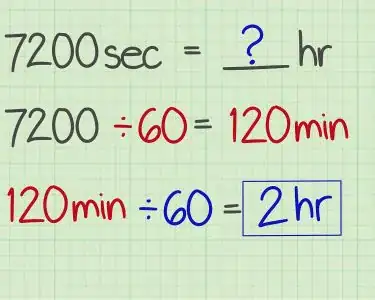 7200 sec = ? hr
7200 ÷ 60 = 120 min
120 min ÷ 60 = 2 hr